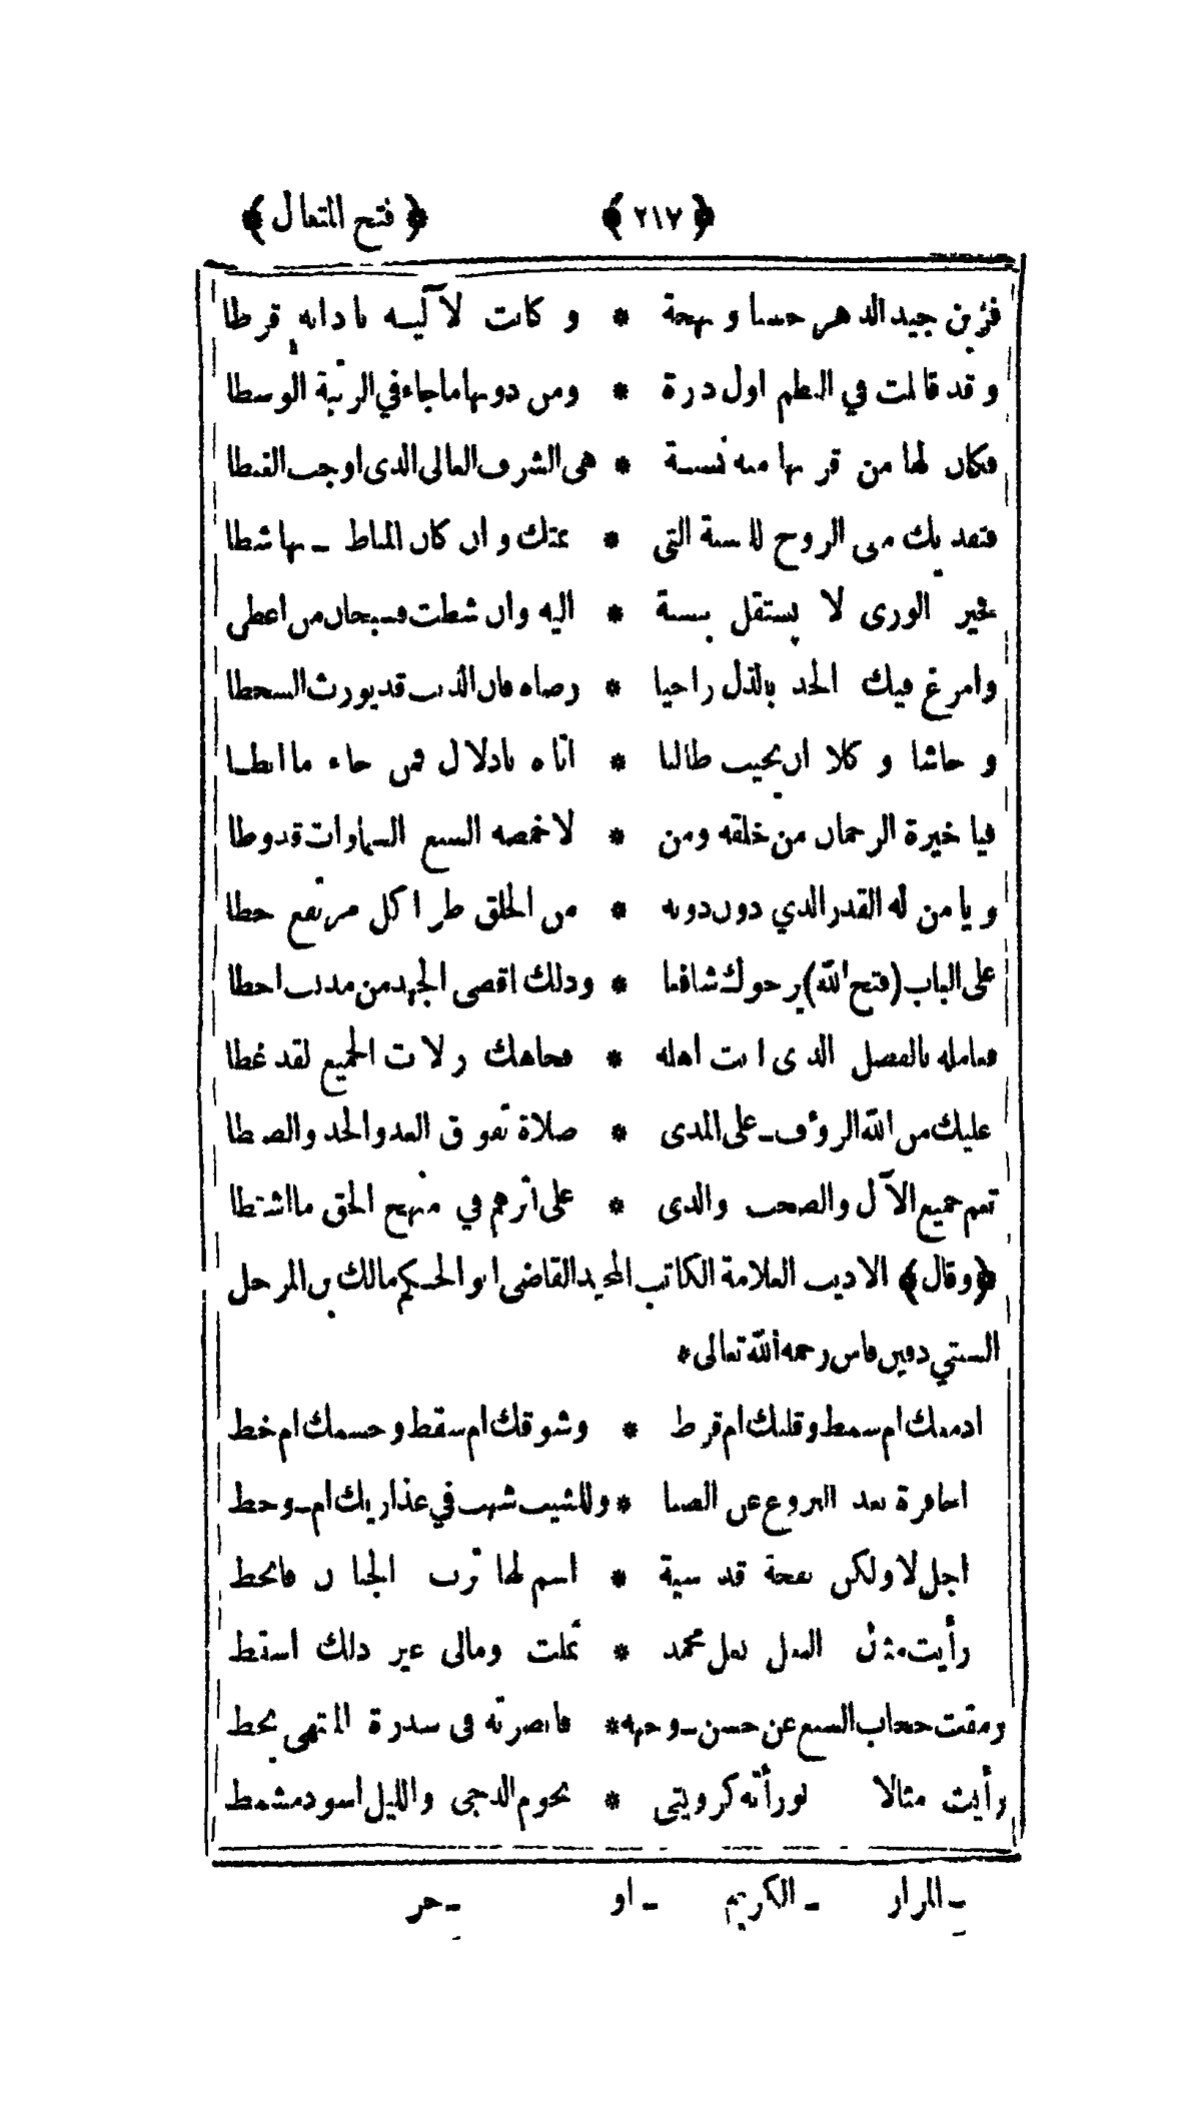 ﴿ ٢١٧ ﴾ ﴿ فتح المتعال ﴾
فزين جيد الدهر حسنا وبهجة * وكانت لآليه باذانه قرطا
وقد قالت في النظم اول درة * ومن دونها ما جاء في الرتبة الوسطا
فكان لها من قربها منه نسبة * هى الشرف العالى الذى اوجب الغبطا
فتفديك منى الروح للنسبة التى * عنتك وان كان المناط ـ بها شطا
بخير الورى لا يستقل بنسبة * اليه وان شطت فسبحان من اعطى
وامرغ فيك الخد بالذل راجيا * رضاه فان الذنب قد يورث السخطا
وحاشا وكلا ان يخيب طالبا * اتاه باذلال فمن جاء ما ابطا
فيا خيرة الرحمان من خلقه ومن * لاخمصه السبع السماوات قد وطا
ويا من له القدر الذي دون دونه * من الخلق طرا كل مرتفع حطا
على الباب (فتح الله) يرجوك شافعا * وذلك اقصى الجهد من مذنب اخطا
فعامله بالفضل الذى انت اهله * فجاهك زلات الجميع لقد غطا
عليك من الله الرؤف ـ على المدى * صلاة تفوق العد والحد والضبطا
تعم جميع الآل والصحب والذى * على اثرهم في منهج الحق ما اشتطا
﴿ وقال ﴾ الاديب العلامة الكاتب المجيد القاضى ابو الحكم مالك بن المرحل
السبتي دفين فاس رحمه الله تعالى *
ادمعك ام سمط وقلبك ام قرط * وشوقك ام سقط وجسمك ام خط
احافرة بعد النزوع عن الصبا * وللشيب شهب في عذاريك ام ـ وخط
اجل لا ولكن نفحة قدسية * اسم لها ترب الجنان فانحط
رأيت مثال النعل نعل محمد * ثملت ومالى غير ذلك اسفط
ومقت حجاب السبع عن حسن ـ وجهه * فابصرته فى سدرة المنتهى يخط
رأيت مثالا لو رأته كرويتى * نجوم الدجى والليل اسود مشمط
ـ المزار ـ الكريم ـ او ـ حر